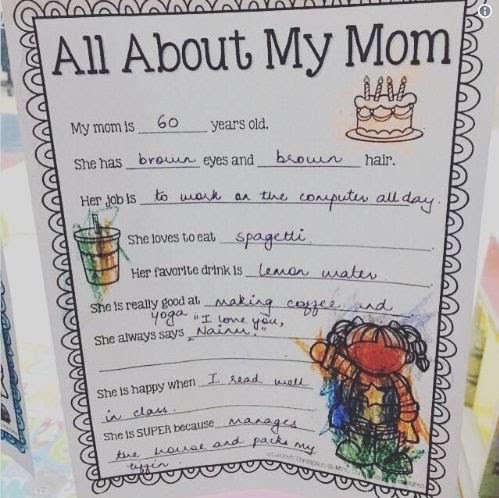 All About My Mom
My mom is 60 years old.
She has brown eyes and brown hair.
Her job is to work on the computer all day.
She loves to eat spagetti.
Her favorite drink is lemon water
She is really good at making coffee and
yoga
She always says "I love you,
Nainu."
She is happy when I read well
in class.
She is SUPER because manages
the house and packs my
tiffin